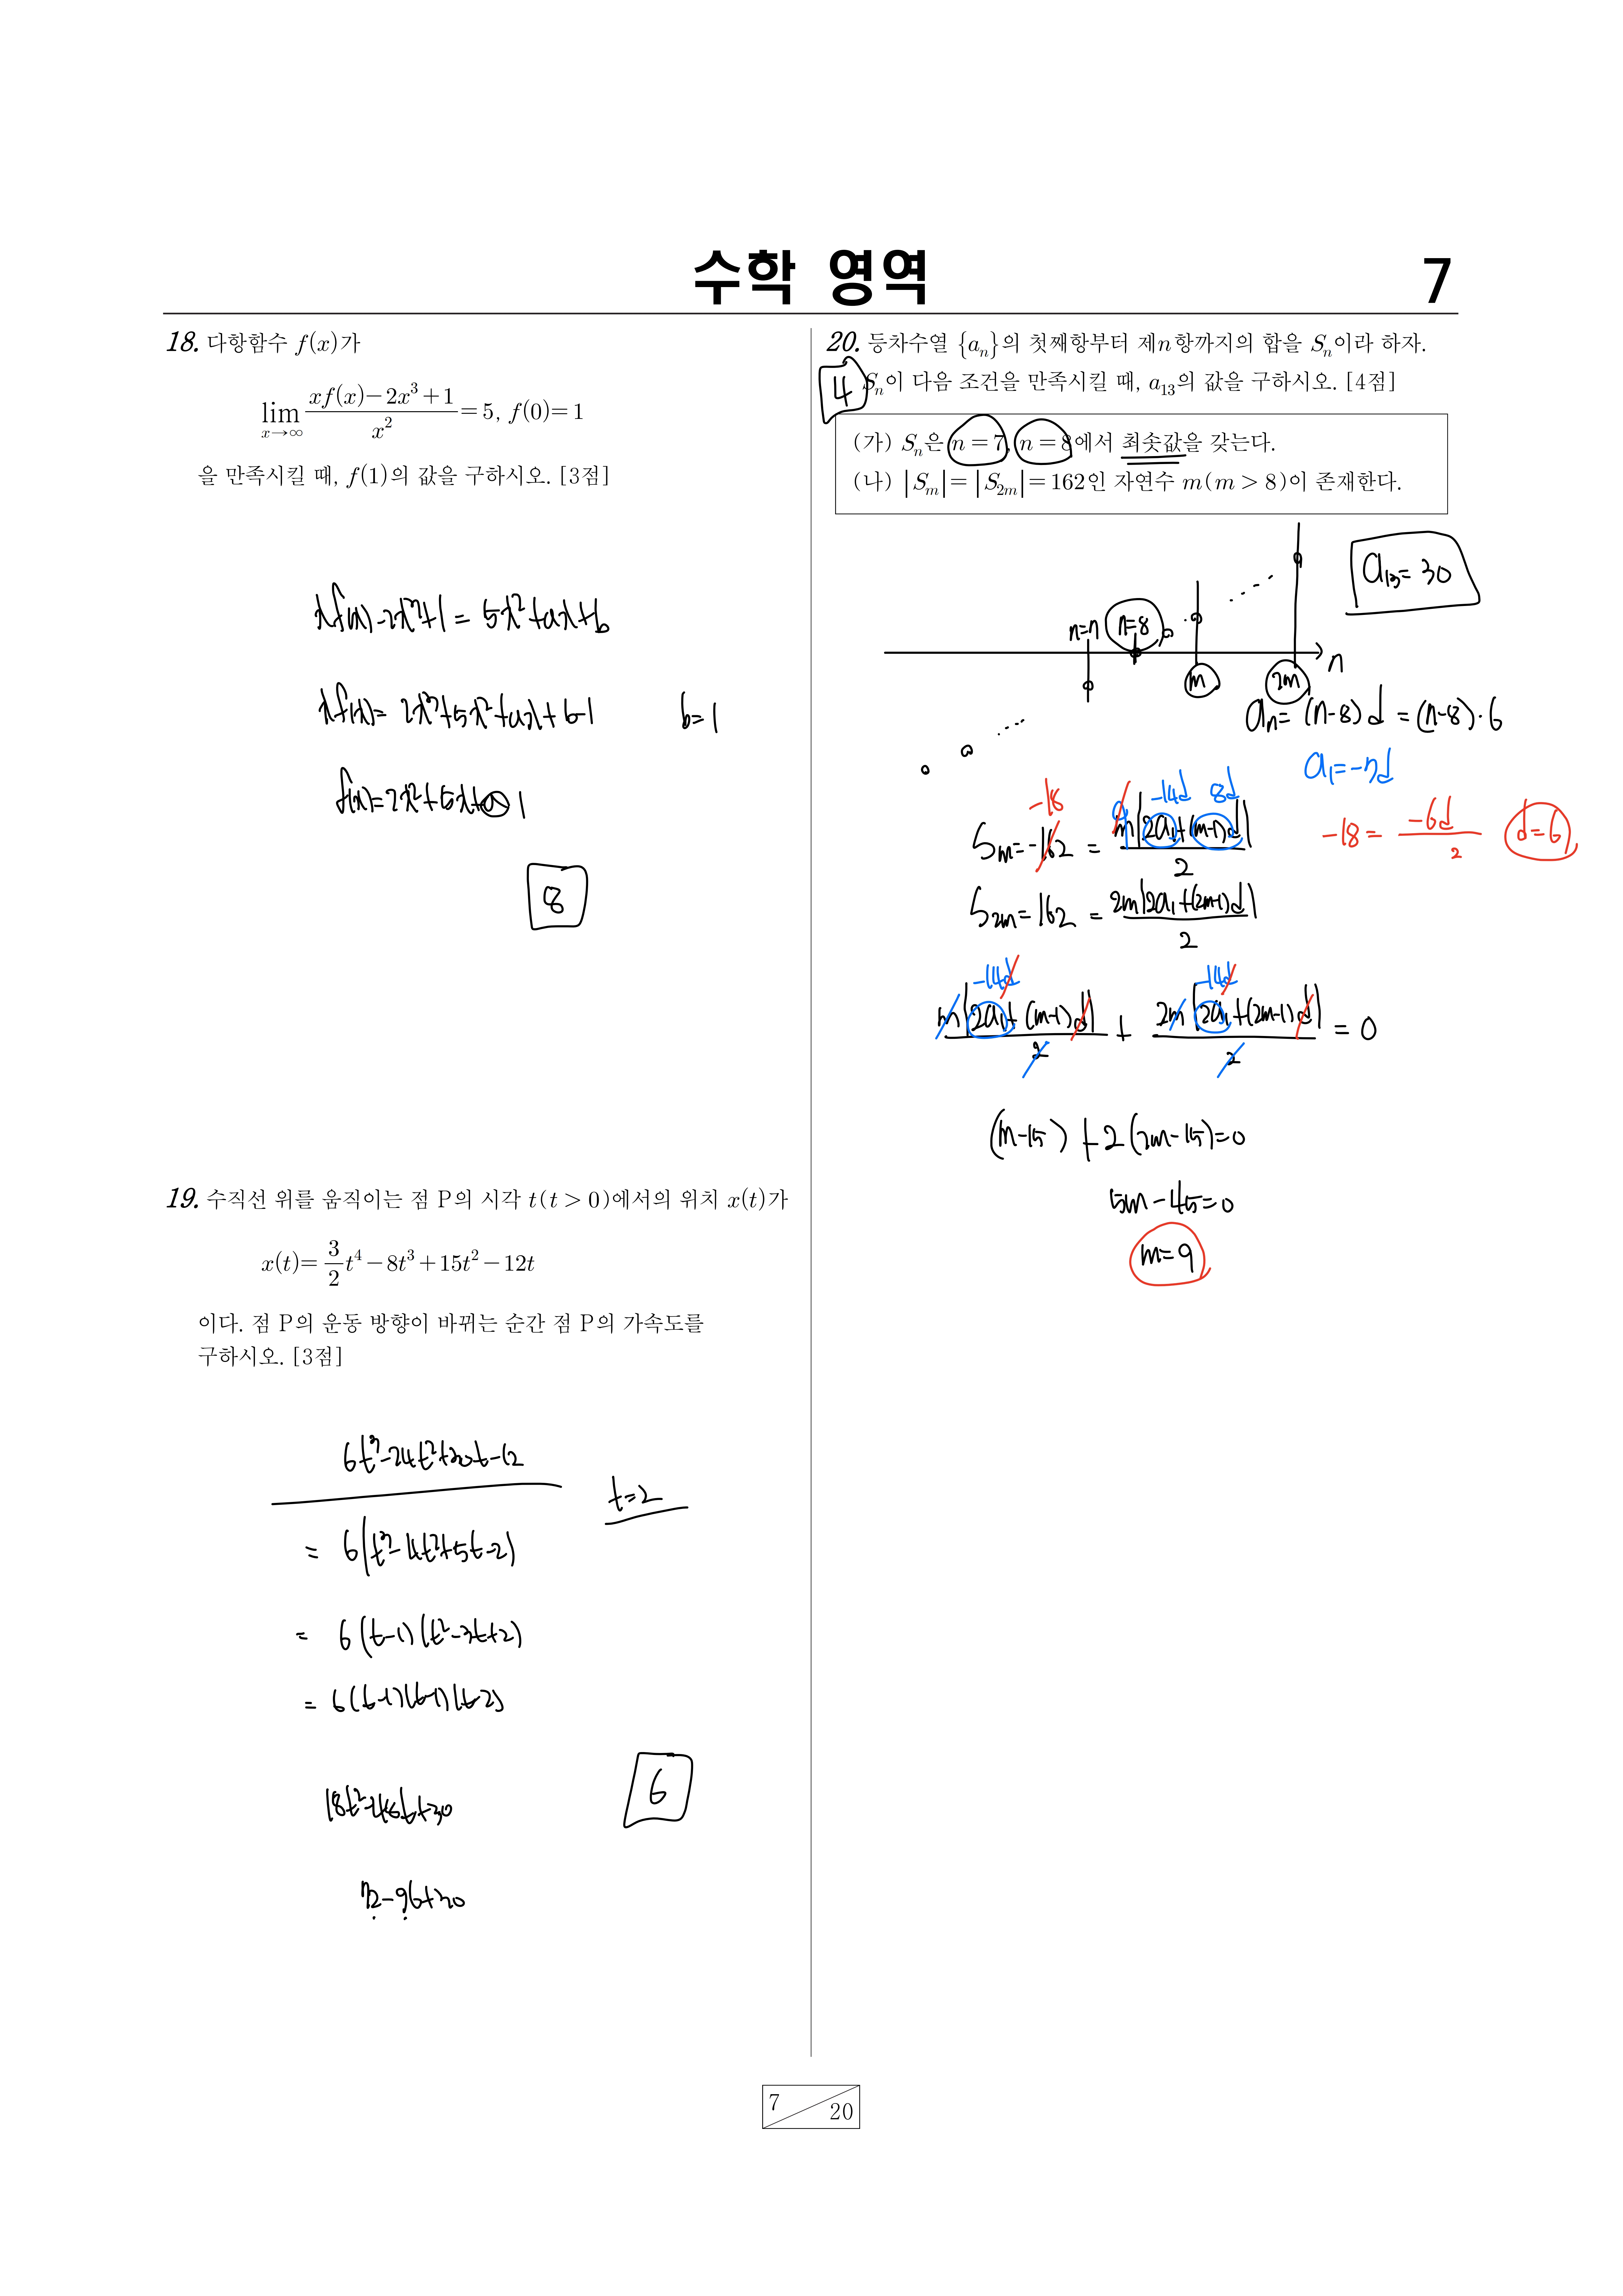 수학 영역
7
18. 다항함수 f(x)가
lim x→∞ (xf(x)−2x³+1)/x² = 5, f(0)=1
을 만족시킬 때, f(1)의 값을 구하시오. [3점]
xf(x)-2x³+1 = 5x²+ax+b
xf(x)= 2x³+5x²+ax+b-1 b=1
f(x)=2x²+5x+a 1
8
19. 수직선 위를 움직이는 점 P의 시각 t(t>0)에서의 위치 x(t)가
x(t)= 3/2 t⁴−8t³+15t²−12t
이다. 점 P의 운동 방향이 바뀌는 순간 점 P의 가속도를
구하시오. [3점]
6t³-24t²+30t-12
t=2
= 6(t³-4t²+5t-2)
= 6(t-1)(t²-3t+2)
= 6(t-1)(t-1)(t-2)
6
18t²-48t+30
72-96+30
20. 등차수열 {aₙ}의 첫째항부터 제n항까지의 합을 Sₙ이라 하자.
4
Sₙ이 다음 조건을 만족시킬 때, a₁₃의 값을 구하시오. [4점]
(가) Sₙ은 n=7, n=8에서 최솟값을 갖는다.
(나) |Sₘ|=|S₂ₘ|=162인 자연수 m(m>8)이 존재한다.
a₁₃=30
n=7 n=8
n
m 2m
aₙ= (n-8)d = (n-8)·6
a₁=-7d
-18 9 -14d 8d
Sₘ=-162 = m(2a₁+(m-1)d)/2
-18= -6d/2 d=6
S₂ₘ=162 = 2m(2a₁+(2m-1)d)/2
-14d -14d
m(2a₁+(m-1)d)/2 + 2m(2a₁+(2m-1)d)/2 = 0
(m-15)+2(2m-15)=0
5m-45=0
m=9
7 20